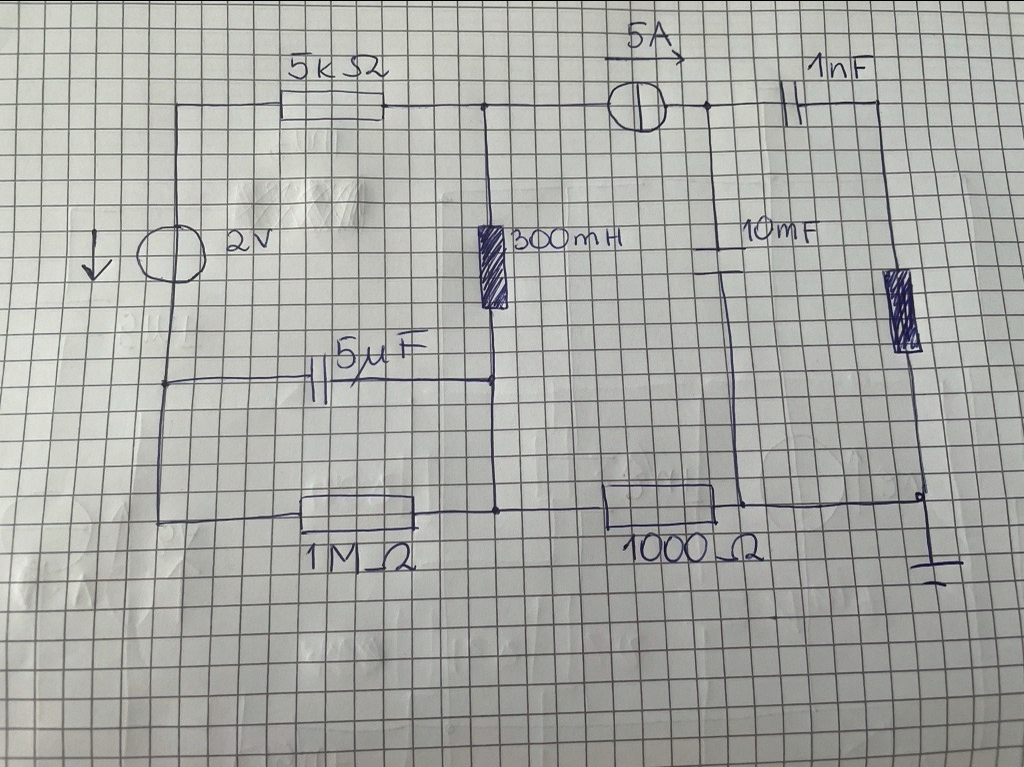 5A
5kΩ
1nF
2V
300mH
10mF
5μF
1MΩ
1000Ω